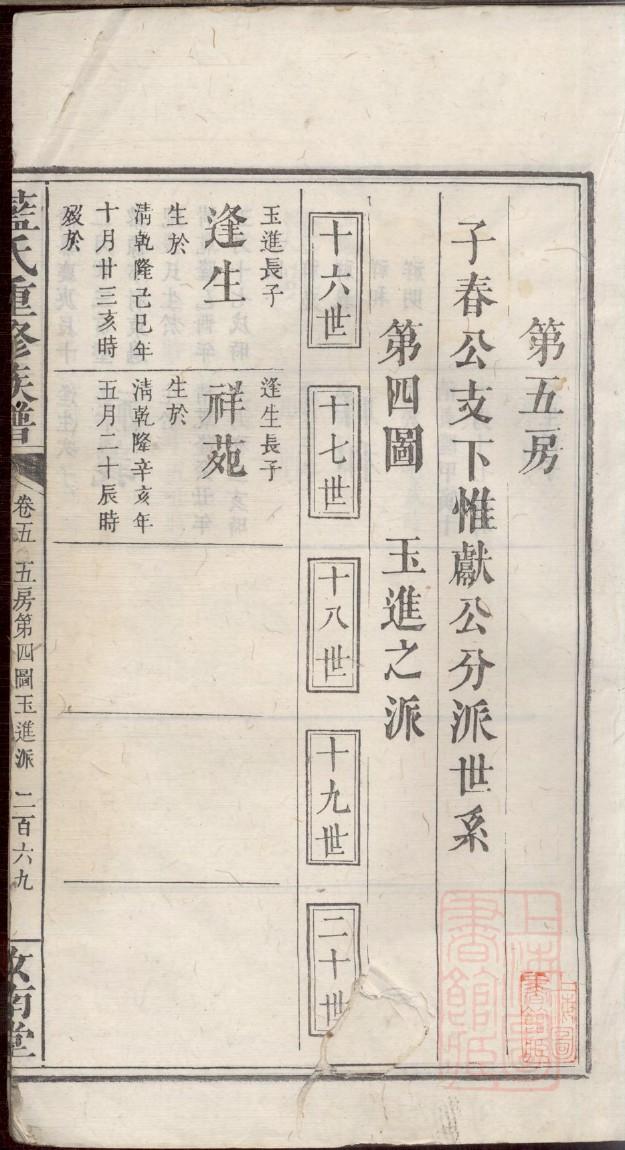 第五房
子春公支下惟獻公分派世系
第四圖 玉進之派
十六世
十七世
十八世
十九世
二十世
玉進長子
逢生
生於
清乾隆己巳年
十月廿三亥時
歿於
逢生長子
祥苑
生於
清乾隆辛亥年
五月二十辰時
藍氏重修族譜
卷五 五房第四圖玉進派 二百六九
汝南堂